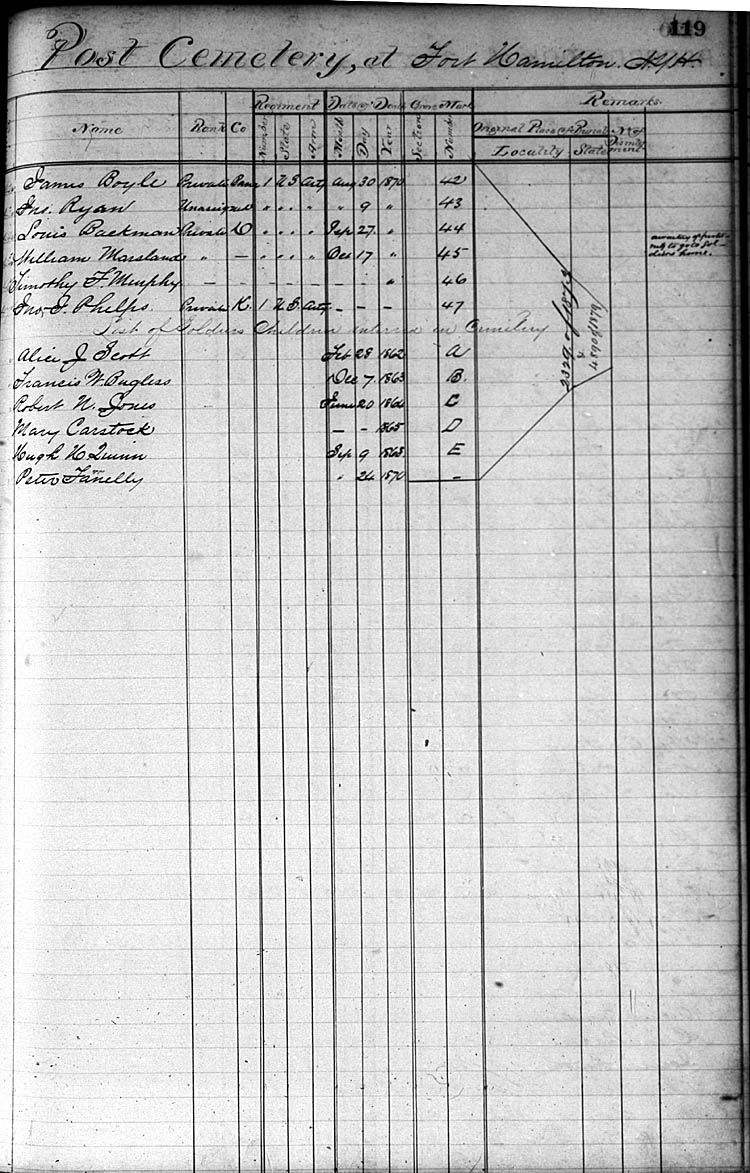 119
Post Cemetery, at Fort Hamilton. N.Y.H.
Regiment Date of Death Grave Mark Remarks
Name Rank Co Number State Arm Month Day Year Section Number Original Place of Burial No of
Locality State
James Boyle Private Band 1 U S Arty Aug 30 1870 42
Jno. Ryan Unassigned " " " " " 9 " 43
Louis Backman Private D " " " " Sep 27 " 44
William Marsland " — " " " " Dec 17 " 45
awaiting opportunity to go to Soldiers home.
Timothy F Murphy — — — — — — — — " 46
Jno. J. Phelps. Private K. 1 U S. Arty — — — 47
List of Soldiers Children interred in Cemetery
Alice J Scott Feb 28 1862 A
Francis W. Bugless Dec 7. 1863 B.
Robert N. Jones June 20 1864 C
Mary Carstock — — 1865 D
Hugh H Quinn Sep 9 1868 E
Peter Fanelly " 24 1870 —
2329 of 1873
& 4890 of 1879